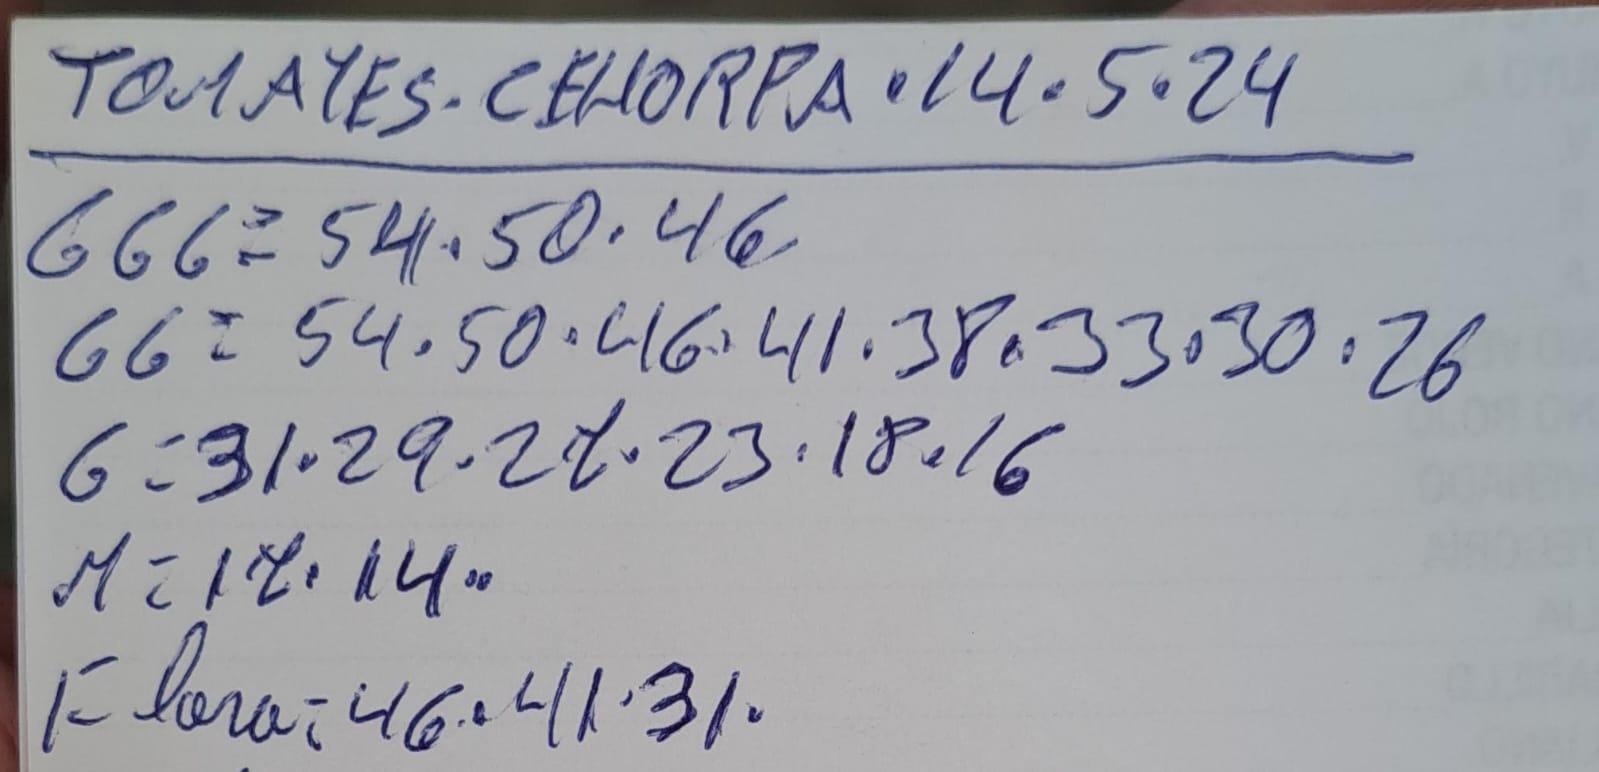 TOMATES. CEHORPA. 14. 5. 24
GGG = 54. 50. 46
GG = 54. 50. 46. 41. 38. 33. 30. 26
G = 31. 29. 27. 23. 18. 16
M = 17. 14..
F lora = 46. 41. 31.